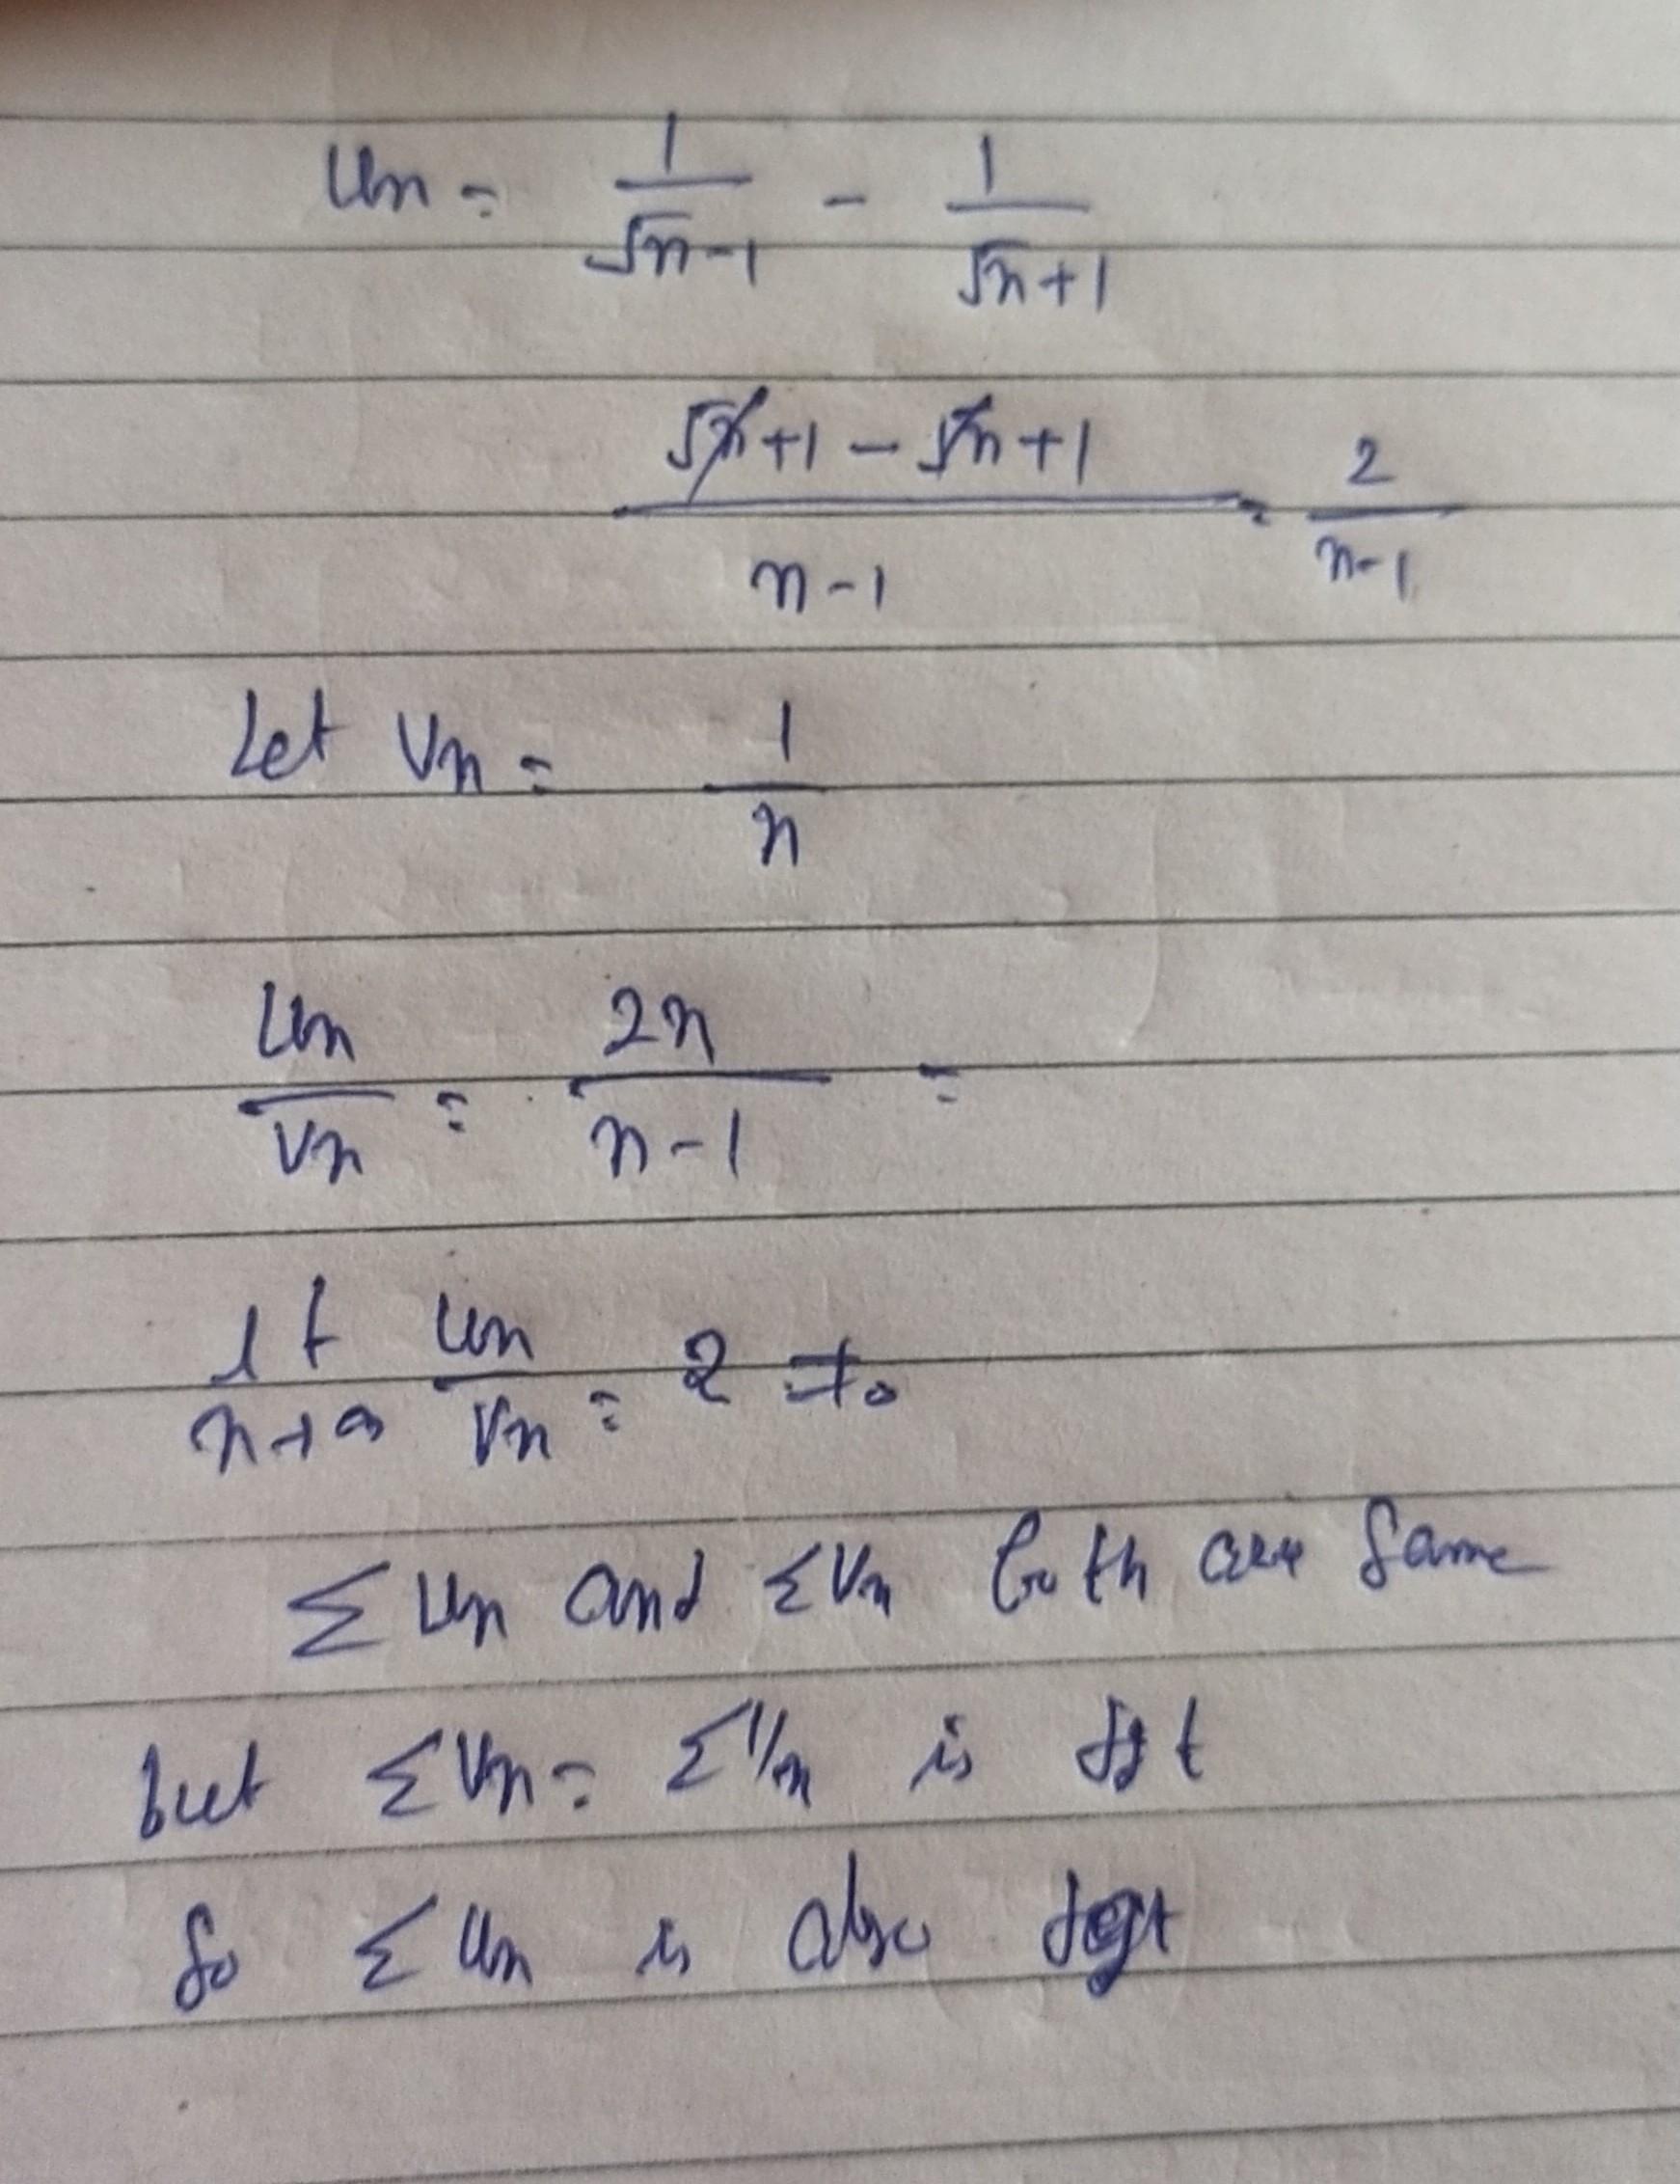 Un = 1/(√n-1) - 1/(√n+1)
(√n+1-√n+1)/(n-1) = 2/(n-1)
Let Vn = 1/n
Un/Vn = 2n/(n-1) =
lt n→∞ Un/Vn = 2 ≠ 0
Σ Un and ΣVn both are same
but ΣVn = Σ1/n is dgt
So Σ Un is also dgt